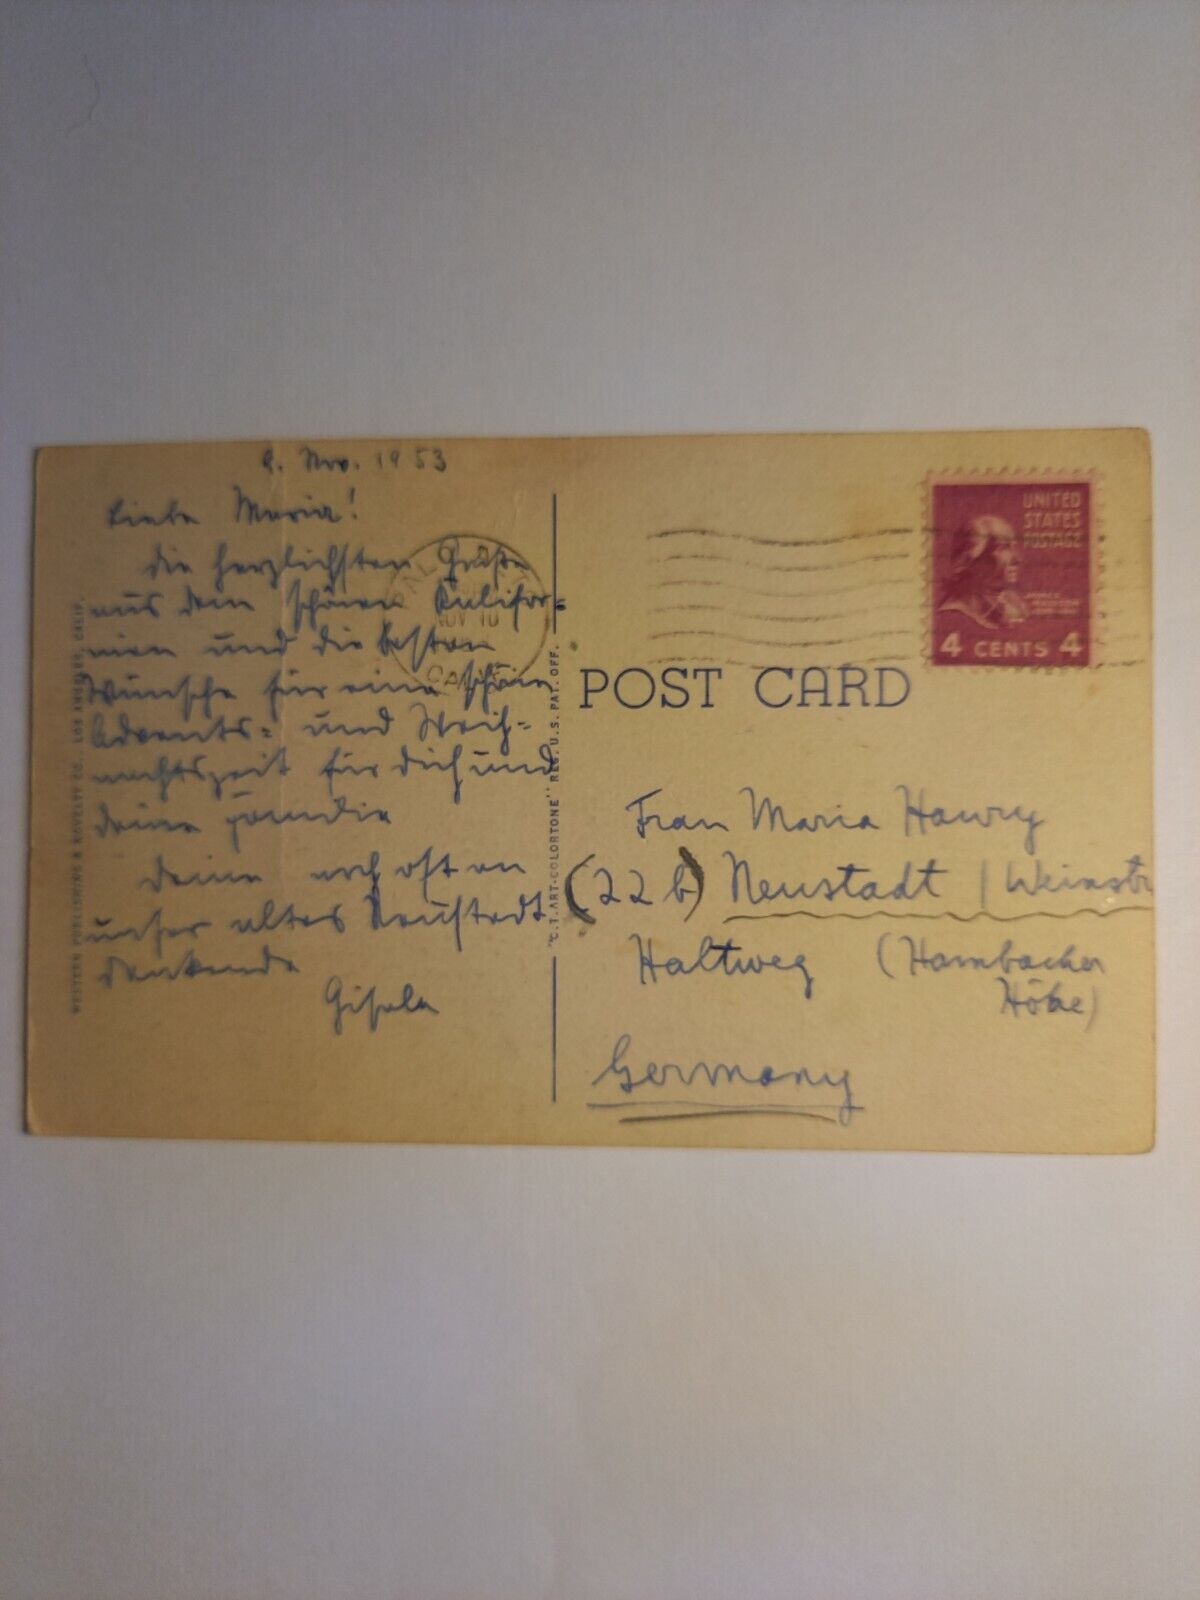 9. Nov. 1953
Liebe Maria!
Die herzlichsten Grüße
aus dem schönen Kalifor=
nien und die besten
Wünsche für eine schöne
Advents= und Weih=
nachtszeit für Dich und
Deine Familie
Deine noch oft an
unser altes Neustadt
denkende
Gisela
WESTERN PUBLISHING & NOVELTY CO., LOS ANGELES, CALIF.
"C.T. ART-COLORTONE" REG. U.S. PAT. OFF.
NOV 10
CALIF
POST CARD
UNITED
STATES
POSTAGE
JAMES
MADISON
4 CENTS 4
Frau Maria
(22b) Neustadt / Weinstr
Haltweg (Hambacher
Höhe)
Germany